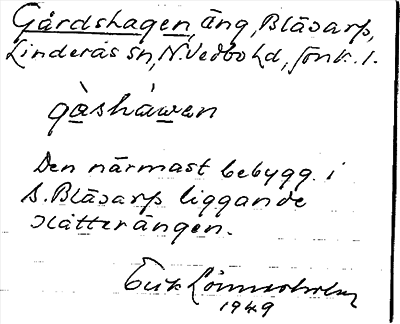 Gårdshagen, äng, Bläsarp,
Linderås sn, N. Vedbo hd, Jönk. l.
gàshàwen
Den närmast bebygg. i
S. Bläsarp liggande
slåtterängen.
Erik Lönnerholm
1949